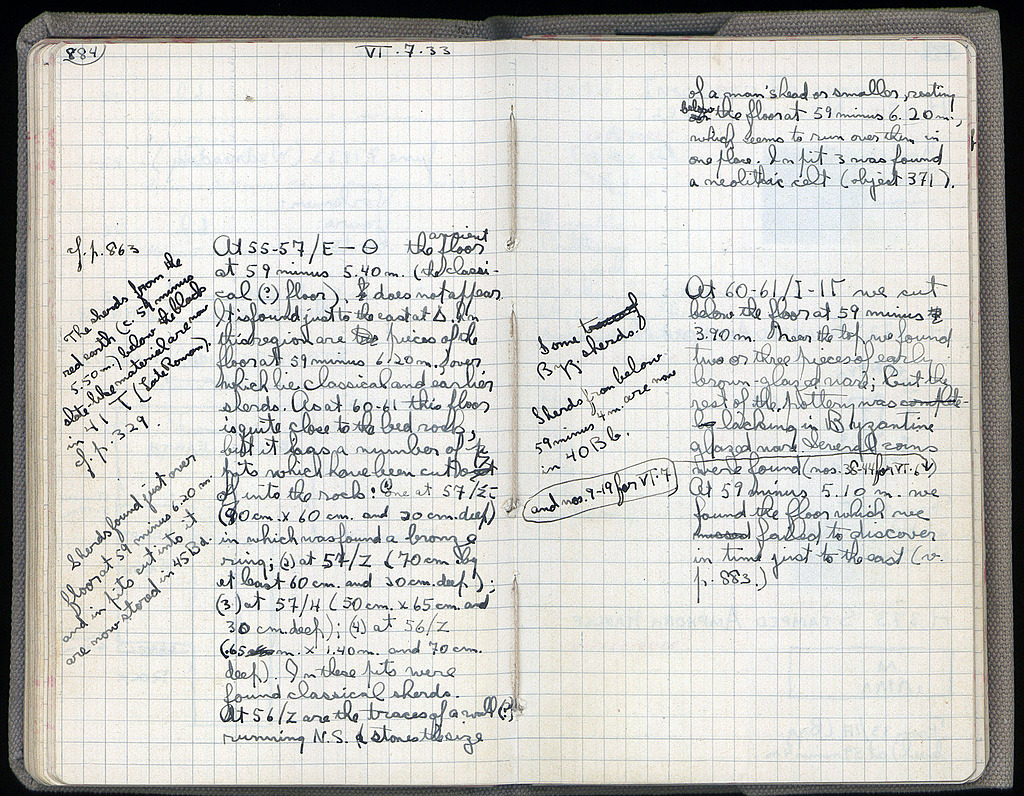 884
VI.7.33
cf. p. 863
The sherds from the
red earth (c. 59 minus
5.50 m.) below the black
slate-like material are now
in 41 T (Late Roman).
cf. p. 329.
Sherds found just over
floor at 59 minus 6.20 m.
and in pits cut into it
are now stored in 45 Bd.
At 55-57/E – Θ the ancient floor
at 59 minus 5.40 m. (the classi-
cal (?) floor). does not appear.
It is found just to the east at Δ. In
this region are pieces of the
floor at 59 minus 6.20 m., over
which lie classical and earlier
sherds. As at 60-61 this floor
is quite close to the bed rock,
but it has a number of
pits which have been cut
into the rock: (1) one at 57/
(90 cm. x 60 cm. and 20 cm. deep)
in which was found a bronze
ring; (2) at 57/Z (70 cm. by
at least 60 cm. and 30 cm. deep);
(3) at 57/H (50 cm. x 65 cm. and
30 cm. deep); (4) at 56/Z
(.65 m. x 1.40 m. and 70 cm.
deep). In these pits were
found classical sherds.
At 56/Z are the traces of a wall (?)
running N.S. stones the size
of a man's head or smaller, resting
below the floor at 59 minus 6.20 m.,
which seems to run over them in
one place. In pit 3 was found
a neolithic celt (object 371).
Some
Byz. sherds.
Sherds from below
59 minus 4 m. are now
in 40 B b.
and nos. 9-19 for VI.7
At 60-61/I-IΓ we cut
below the floor at 59 minus
3.90 m. Near the top we found
two or three pieces of early
brown-glazed ware; but the
rest of the pottery was complete-
ly lacking in Byzantine
glazed ware. Several coins
were found (nos. 38-44 for VI.6)
At 59 minus 5.10 m. we
found the floor which we
failed to discover
in time just to the east (v.
p. 883.)